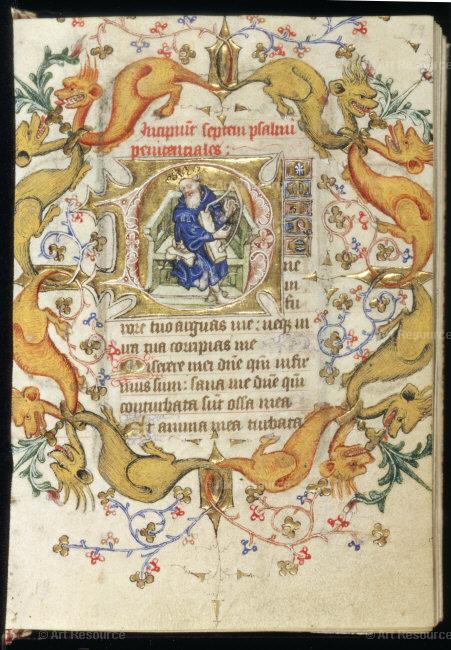 79
Incipiūt septem psalmi
penitenciales :
D
ne
in
fu
rore tuo arguas me : neqꝫ in
ira tua corripias me
Miserere mei dn̄e qm̄ infir
mus sum : sana me dn̄e qm̄
conturbata sūt ossa mea
Et anima mea turbata
© Art Resource
© Art Resource
© Art Resource